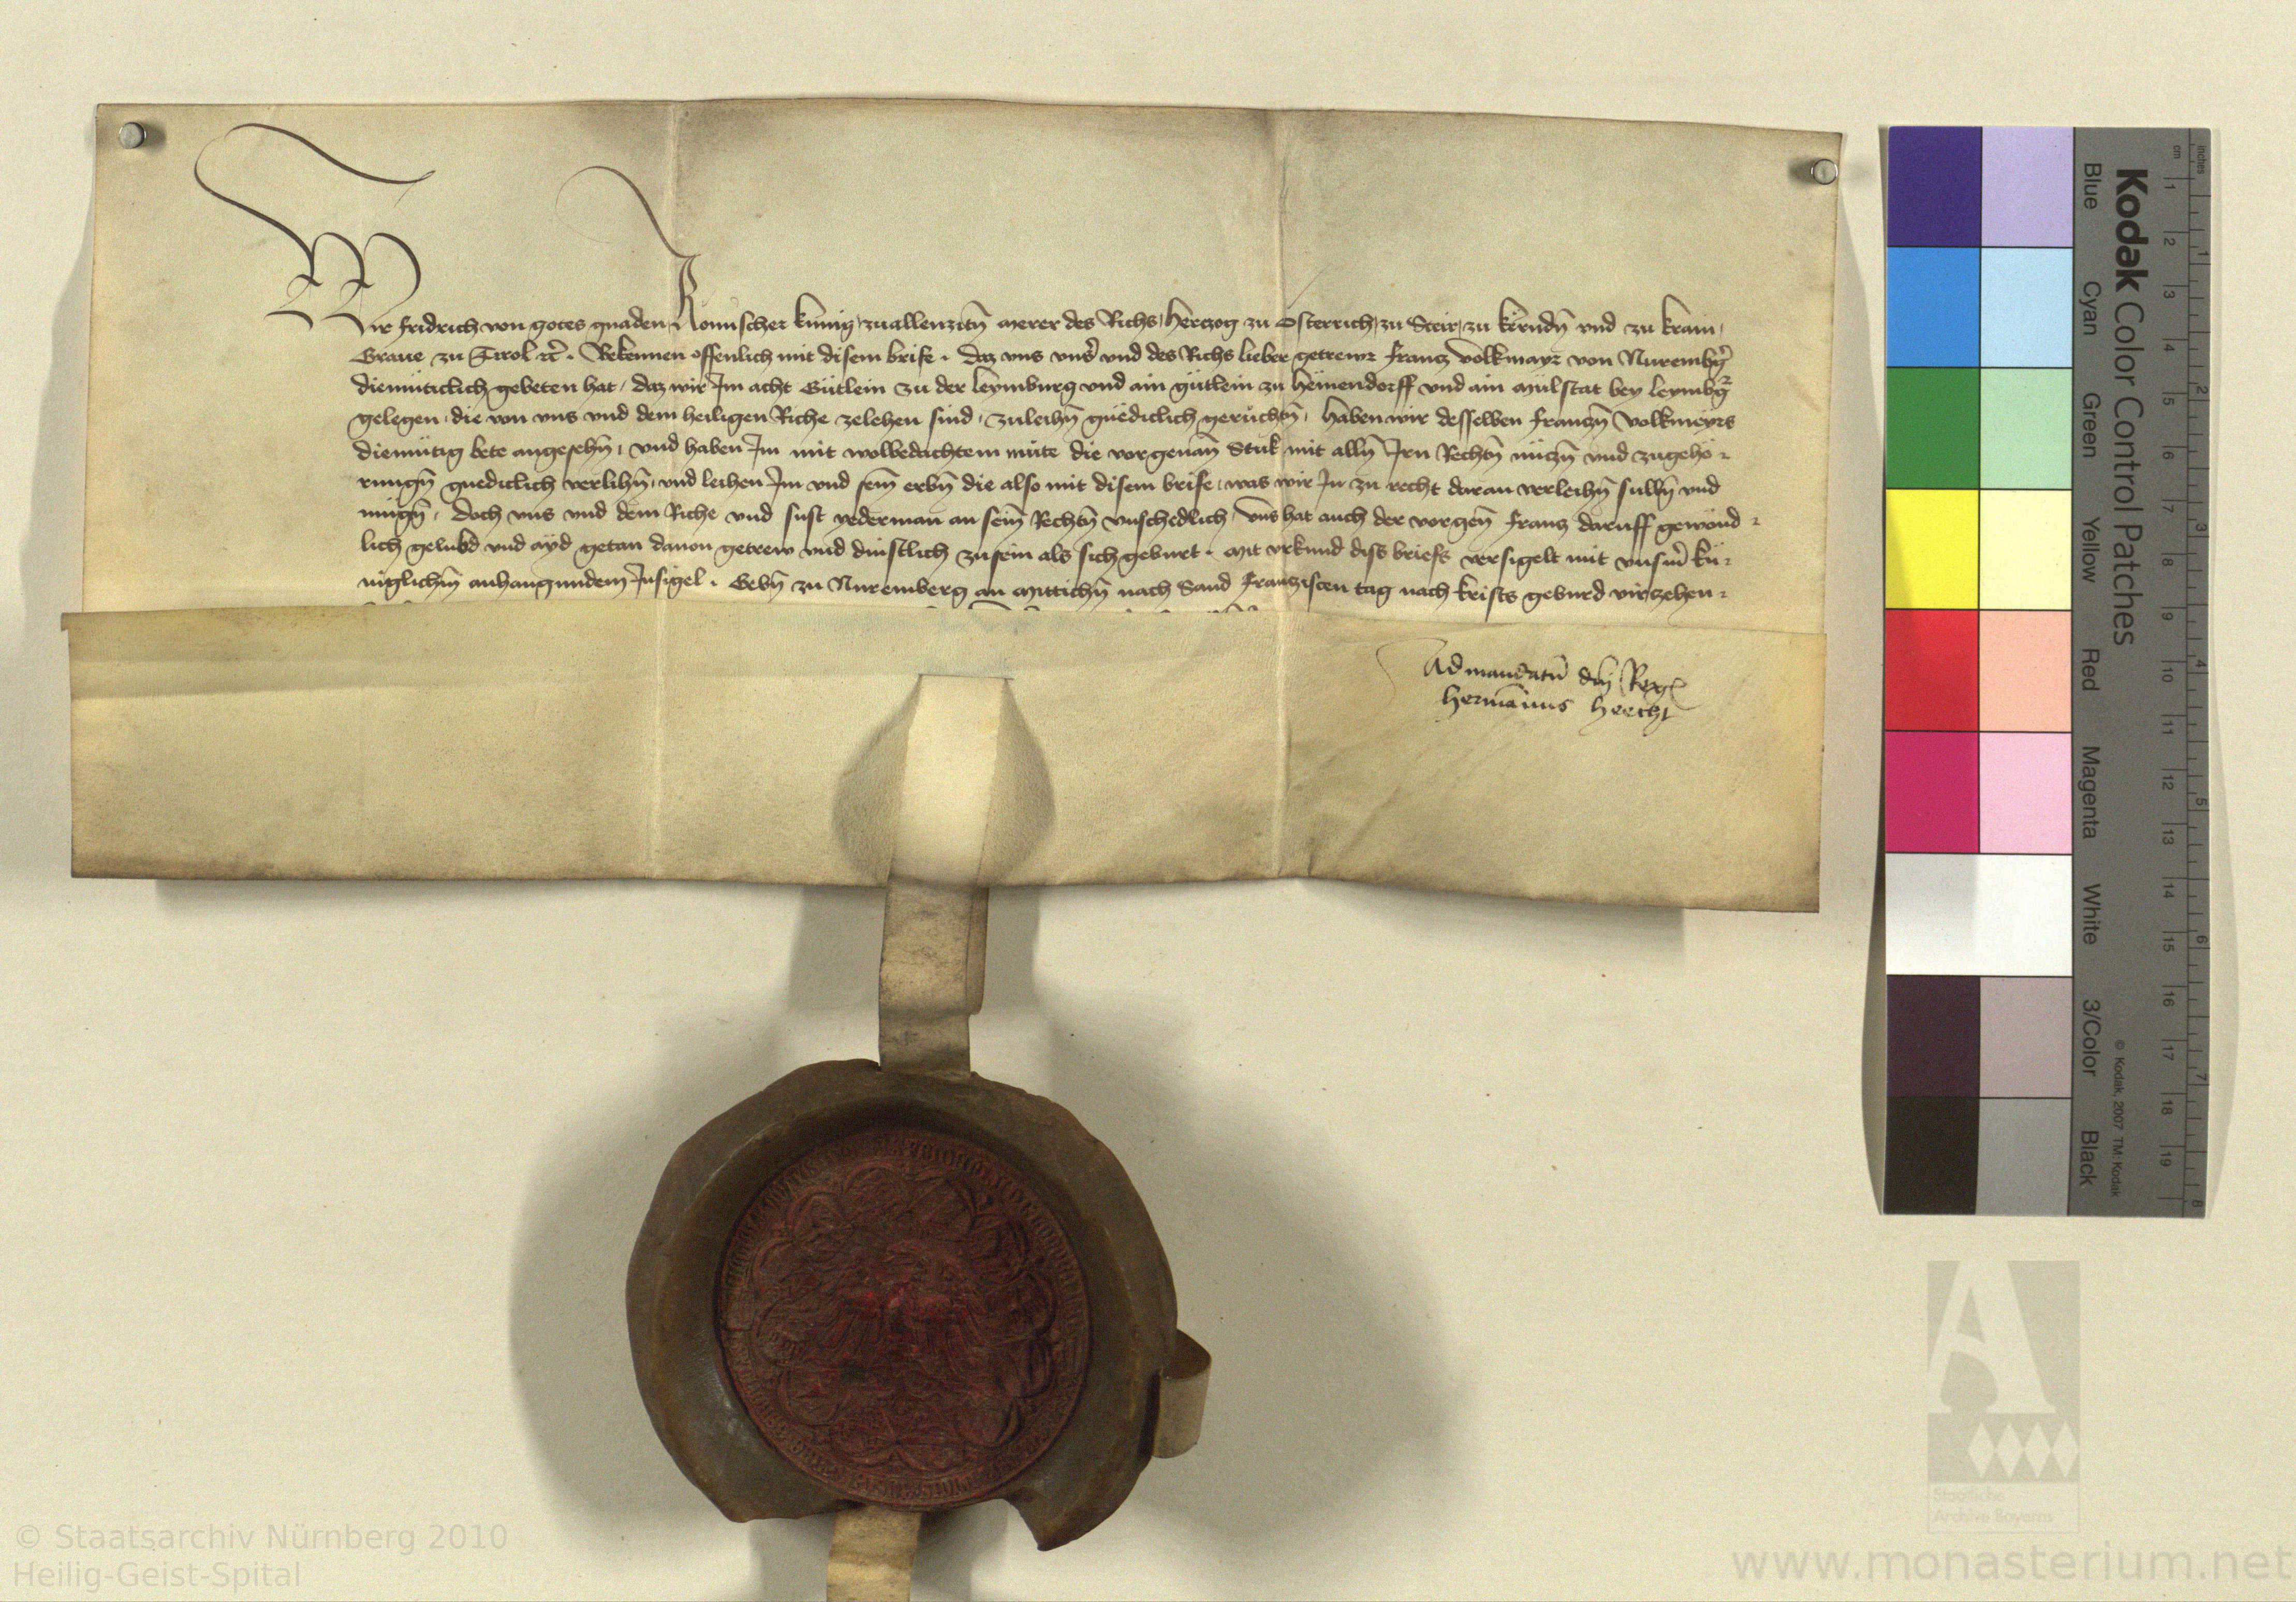 Wir Fridrich von gotes gnaden Römischer künig zuallenzitn̄ merer des Richs Hertzog zu Österrich zu Steir zu kerndn̄ vnd zu krain
Graue zu Tirol ꝛc̄. Bekennen offenlich mit disem brife. Daz vns vnsˀ vnd des Richs lieber getrewr Franz Volkmayr von Nurembgˀ
diemüticlich gebeten hat, daz wir Im acht Gütlein zu der leymburg vnd ain gütlein zu heimendorff vnd ain mülstat bey leymbgˀ
gelegen, die von vns vnd dem heiligen Riche zelehen sind, zuleihn̄ gnëdiclich gerüchtn̄, haben wir desselben Franczn̄ Volkmeyrs
diemütig bete angesehn̄, vnd haben Im mit wolbedachtem müte die vorgenan̄ Stuk mit alln̄ Iren Rechtn̄ nüczn̄ vnd zugehö-
rungn̄ gnediclich verlihn̄, vnd leihen Im vnd sein̄ erbn̄ die also mit disem brife, was wir In zu recht daran verleihn̄ sulln̄ vnd
mügn̄, Doch vns vnd dem Riche vnd sust yederman an sein̄ Rechtn̄ vnschedlich, vns hat auch der vorgen̄ Franz daruff gewönd-
lich gelubd vnd ayd getan dauon getrew vnd dinstlich zusein als sich geburt. Mit vrkund diss briefs versigelt mit vnserm̄ kü-
niglichn̄ anhangundem Insigel. Gebn̄ zu Nuremberg an Mittichn̄ nach Sand Franziscen tag nach krists geburd virzehen-
Ad mandatū dn̄i Regˢ
hermān̄us heecht
Kodak Color Control Patches
Blue
Cyan
Green
Yellow
Red
Magenta
White
3/Color
Black
© Kodak, 2007 TM: Kodak
cm 1 2 3 4 5 6 7 8 9 10 11 12 13 14 15 16 17 18 19
inches 1 2 3 4 5 6 7 8
© Staatsarchiv Nürnberg 2010
Heilig-Geist-Spital
Staatliche
Archive Bayerns
www.monasterium.net